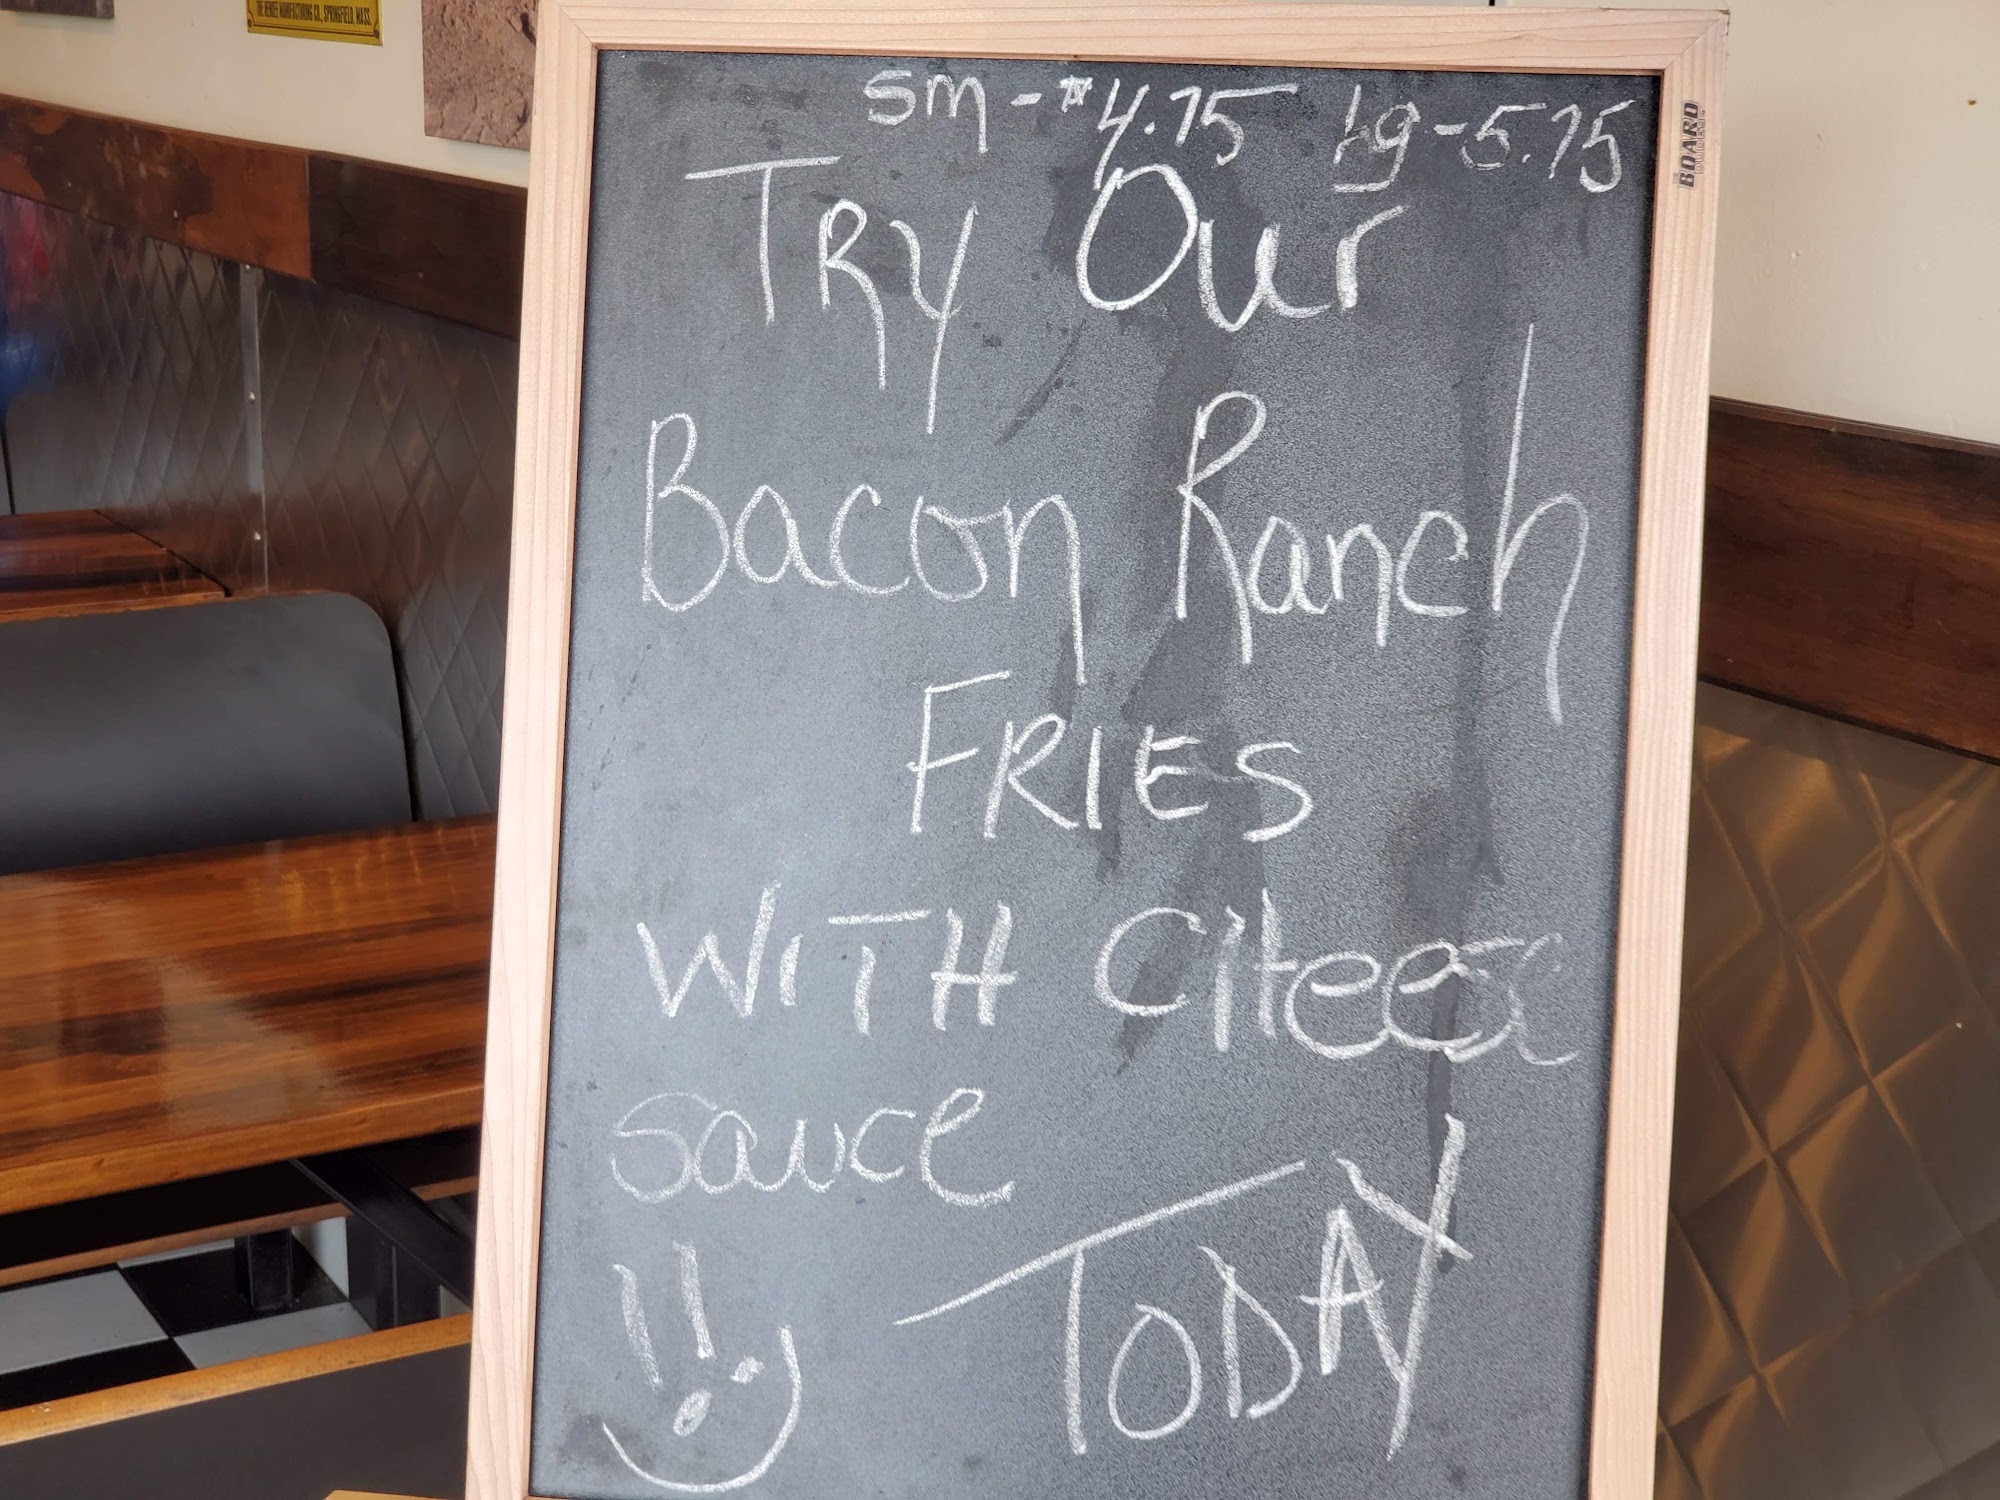 THE BEMIS MANUFACTURING CO., SPRINGFIELD, MASS.
sm - $4.75 lg - 5.75
THE BOARD
TRY Our
Bacon Ranch
FRIES
WITH CHeese
sauce
!!
TODAY